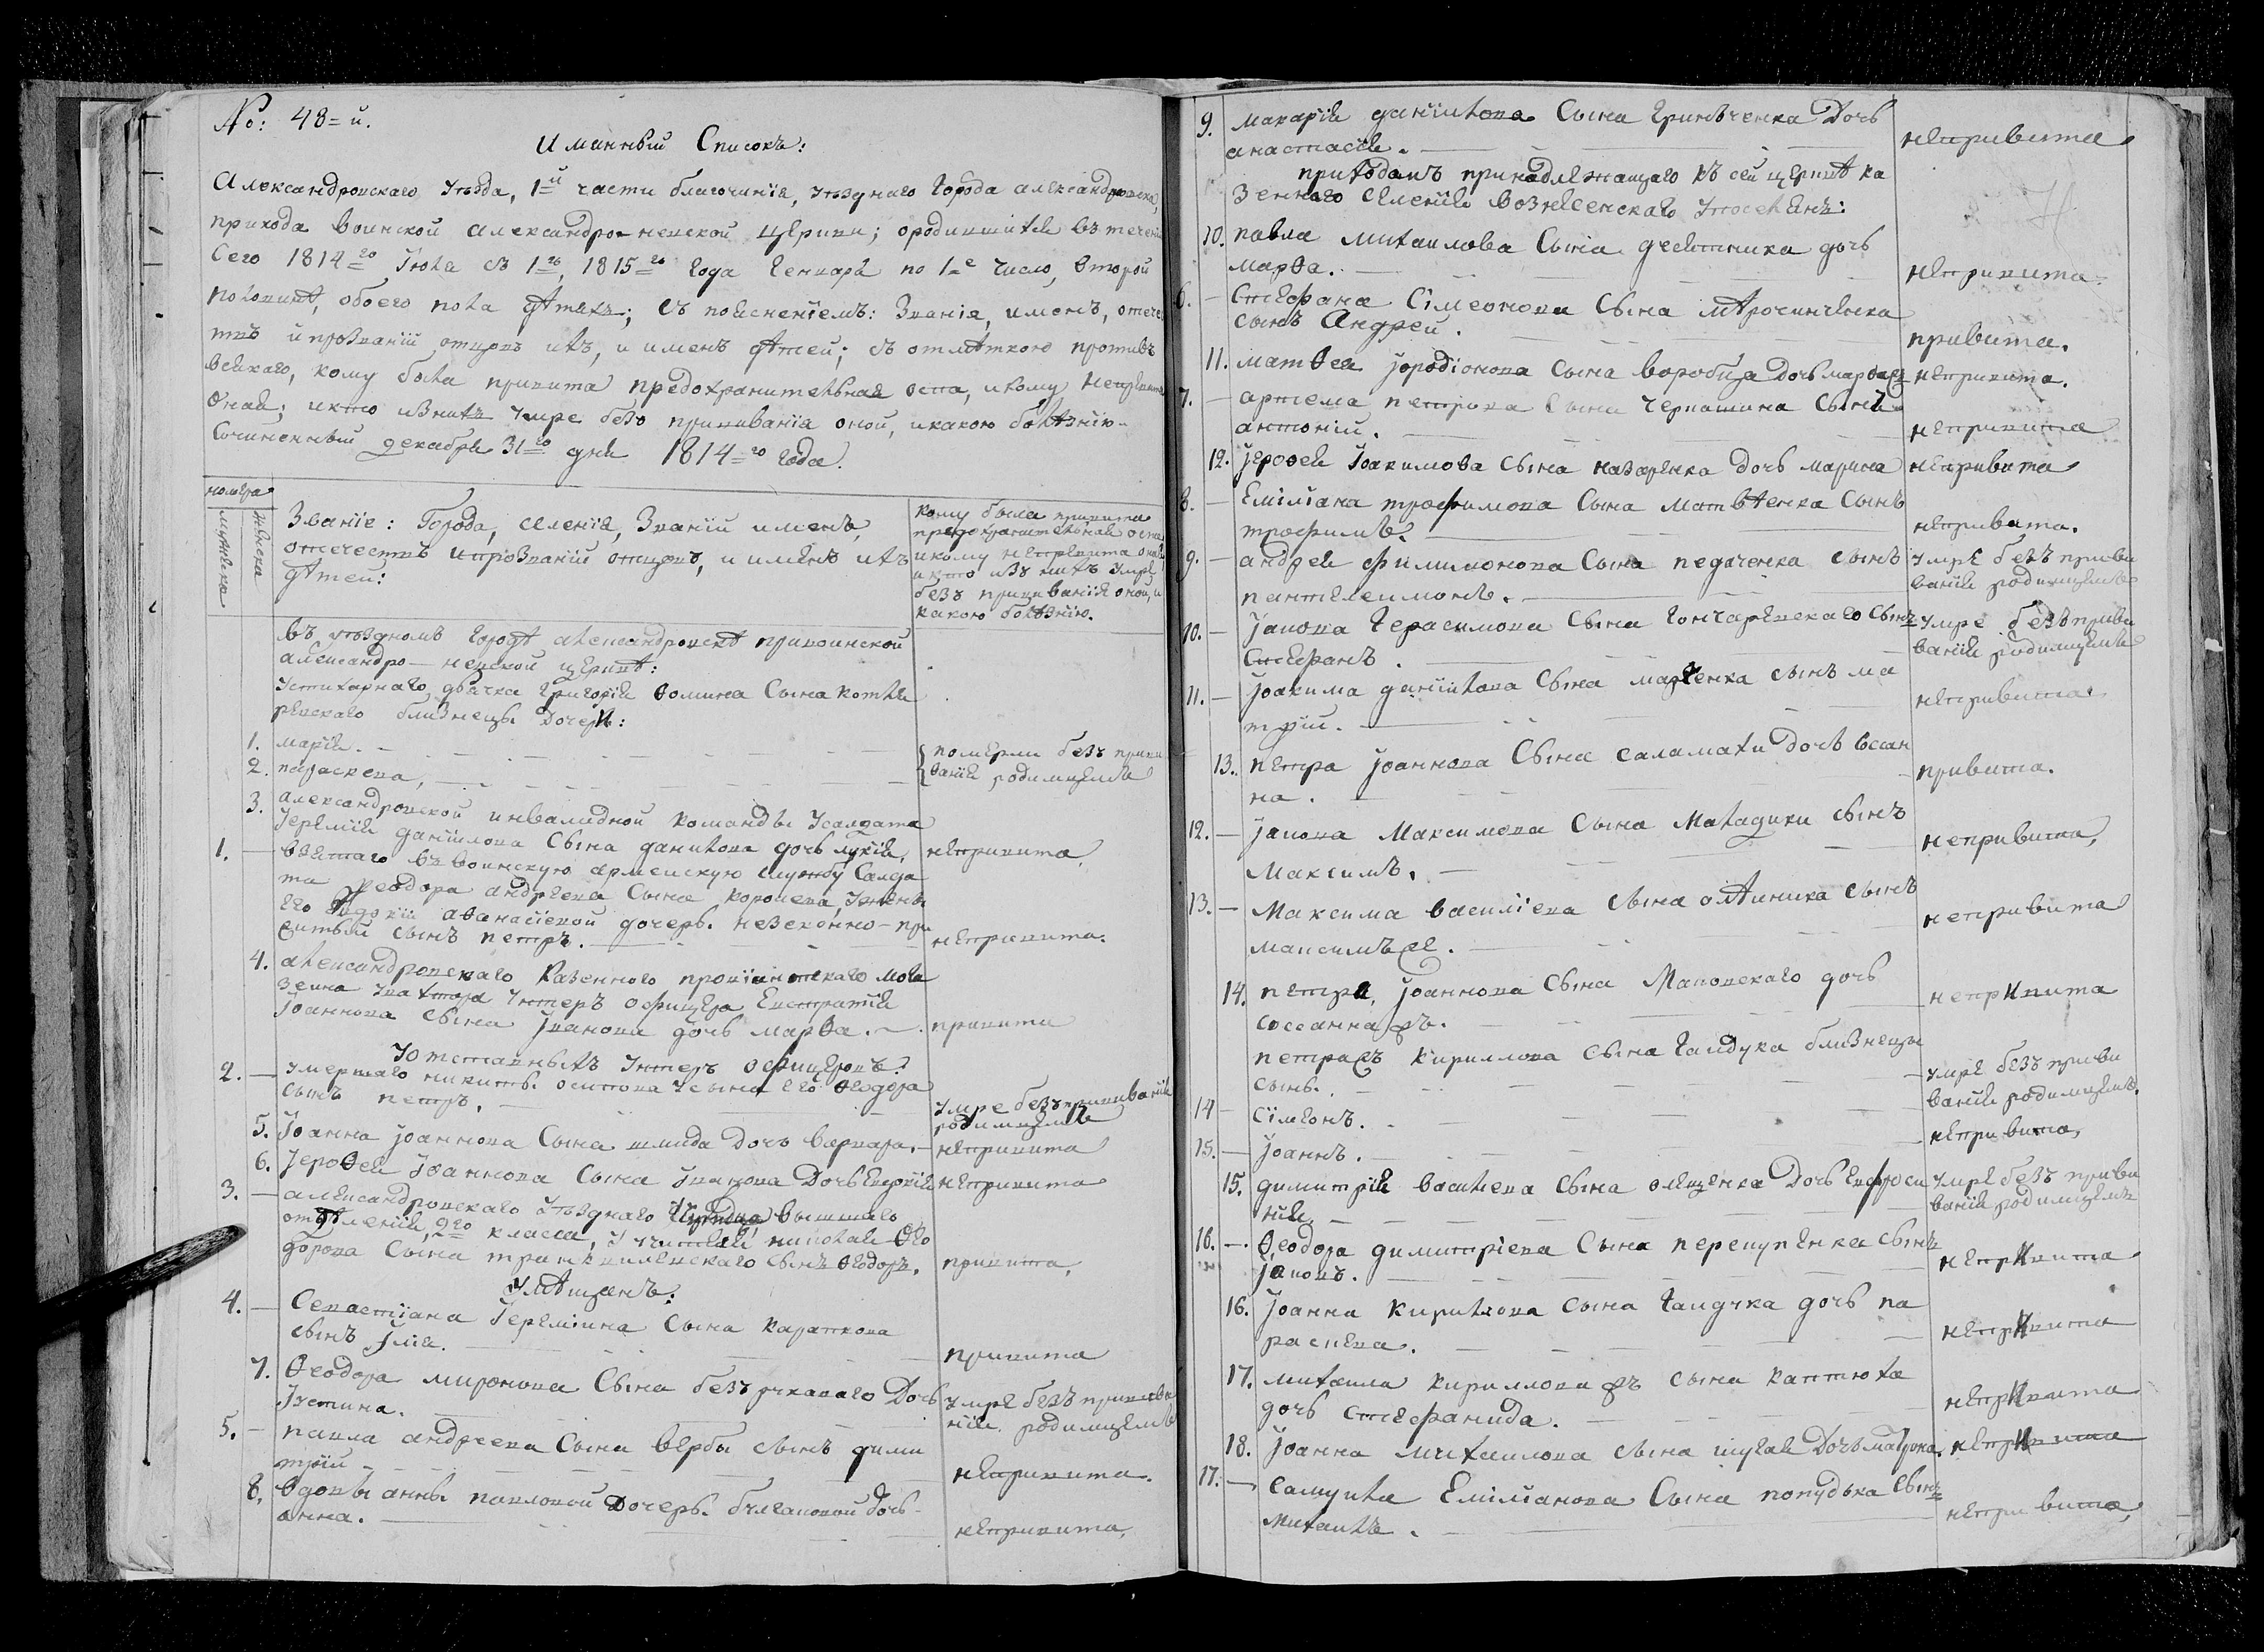 No: 48=й.
Иманный Списокъ:
Александровскаго уѣзда, 1=й части благочинія, уѣзднаго города александровска,
прихода воинской александро-невской церкви; ородившихся въ теченіи
сего 1814=го Іюля съ 1=го, 1815=го года Генваря по 1=е число, второй
половинѣ, обоего пола дѣтяхъ; съ поясненіемъ: Званія, именъ, отече
твъ и прозваній отцовъ ихъ, и именъ дѣтей; съ отмѣткою противъ
всякаго, кому была привита предохранительная оспа, икому непривита
оная; икто изнихъ умре безъ прививанія оной, икакою болѣзнію.
Сочиненный декабря 31=го дня 1814=го года.
номера
мужеска
женска
Званіе: Города, селенія, Званій именъ,
отечествъ ипрозваній отцовъ, и именъ ихъ
дѣтей:
кому была привита
предохранительная оспа
икому непривита оная
икто изъ нихъ умре
безъ прививанія оной, и
какою болѣзнію.
въ уѣздномъ городѣ александровскѣ привоинской
александро-невской церквѣ:
Устихарнаго дьячка Григорія Ѳомина Сына котля
ревскаго близнецы дочери:
1. марія.
2. параскева,
померли безъ приви
ванія родимцемъ
3. александровской инвалидной команды Усалдата
Іереміи даніилова сына данилова дочь лукія,
непривита
1. взятаго въ воинскую армейскую службу Салда
та Ѳеодора андреева Сына королева, Ужены
его Евдокіи аѳанасіевой дочерь. незаконно-при
житый сынъ петръ.
непривита.
4. александровскаго казеннаго провіантскаго мага
зеина Унтеръ офицера Евстратія
Іоаннова сына Іванова дочь марѳа.
привита
Уотставныхъ Унтеръ офицеровъ:
2. умершаго никиты осипова Усына его Ѳеодора
сынъ петръ.
умре безъ прививанія
родимцемъ
5. Іоанна Іоаннова Сына шмида Дочь варвара.
непривита
6. Іероѳея Іоаннова Сына Іванова Дочь Евдокія
непривита
3. александровскаго уѣзднаго Училища вышшаго
отдѣленія, 2го класса, Учителя николая Ѳео
дорова Сына транквилевскаго сынъ Ѳеодоръ.
привита,
Умѣщанъ:
4. Севастіана Іереміина Сына карапкова
сынъ Ілія.
привита
7. Ѳеодора миронова Сына безъ рукаваго Дочь
Іустина.
умре безъ прививанія
родимцемъ
5. павла андреева Сына вербы сынъ дими
трій
непривита.
8. Вдовы анны павловой дочерь. булгаковой дочь
анна.
непривита,
9. макарія даніилова Сына Гринѣченка Дочь
анастасія.
непривита
приходамъ принадлежащаго къ сей церквѣ ка
зеннаго селенія вознесенскаго Упоселянъ:
10. павла михаилова Сына десятника дочь
марѳа.
непривита
6. Стефана Сімеонова Сына мѣрочинченка
сынъ Андрей.
привита.
11. матѳея Іородіонова Сына воробца Дочь марѳа
непривита.
7. артема петрова Сына чернашина сынъ
антоній.
непривита
12. Іероѳея Іоакимова сына назаренка дочь марина
непривита
8. Еміліана трофимова Сына матвѣенка Сынъ
трофимъ.
непривита.
9. андрея филимонова Сына педаченка сынъ
пантелеимонъ.
умре безъ приви
ванія родимцемъ
10. Іакова Герасимова Сына Гончаревскаго сынъ
Стефанъ.
умре безъ приви
ванія родимцемъ
11. Іоакима даніилова Сына мазченка сынъ ма
трій.
непривита.
13. петра Іоаннова Сына саламахи дочь ксан
на.
привита.
12. Іакова Максимова Сына Маладики сынъ
Максимъ.
непривита,
13. Максима василіева Сына олѣиника сынъ
максимъ.
непривита
14. петра Іоаннова Сына Маковскаго дочь
соссанна.
непривита
петра кириллова сына гаидука близнецы
сыны.
14 Сімеонъ.
умре безъ приви
ванія родимцемъ.
15. Іоаннъ.
непривита,
15. димитрія василіева Сына олещенка Дочь Евфроси
нія.
умре безъ приви
ванія родимцемъ
16. Ѳеодора димитріева Сына перекупенка Сынъ
Іаковъ.
непривита
16. Іоанна кирилова Сына Гаидука дочь па
раскева.
непривита
17. михаила кириллова сына каптюха
дочь стефанида.
непривита
18. Іоанна михаилова сына щукая Дочь матрона.
непривита
17. Самуила Еміліанова Сына попудька Сынъ
михаилъ.
непривита,